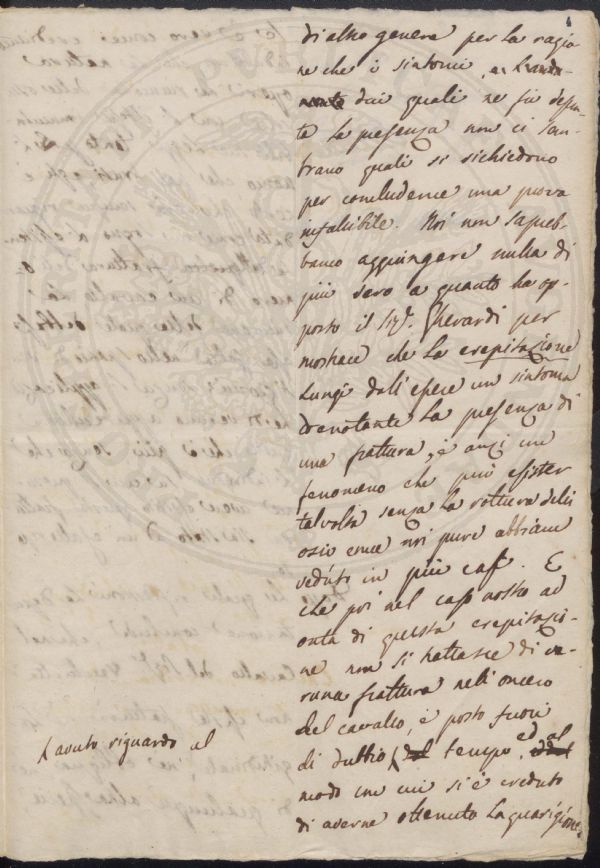 di altro genere per la ragio-
ne che i sintomi,
dai quali ne fu desun-
ta la presenza non ci sem-
brano quali si richiedono
per concludence una prova
infallibile. Noi non sapreb-
bamo aggiungere nulla di
più sero a quanto ha op-
posto il Sig.r Gherardi per
mostrare che la crepitazione
lungi dall'essere un sintoma
denotante la presenza di
una frattura, è anzi un
fenomeno che può esister
talvolta senza la rottura delli
ossi come noi pure abbiamo
veduto in più casi. E
che poi nel caso nostro ad
onta di questa crepitazio-
ne non si trattasse di ve-
runa frattura nell'omero
del cavallo, è posto fuori
di dubbio, tempo, ed al
modo con cui si è creduto
di averne ottenuta la guarigione.
avuto riguardo al